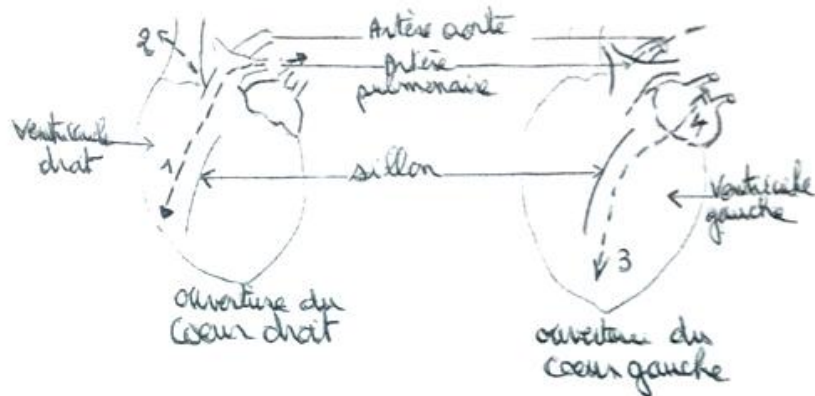 Artère aorte
2
Artère
pulmonaire
4
Ventricule
droit
1
sillon
Ventricule
gauche
3
ouverture du
coeur droit
ouverture du
coeur gauche